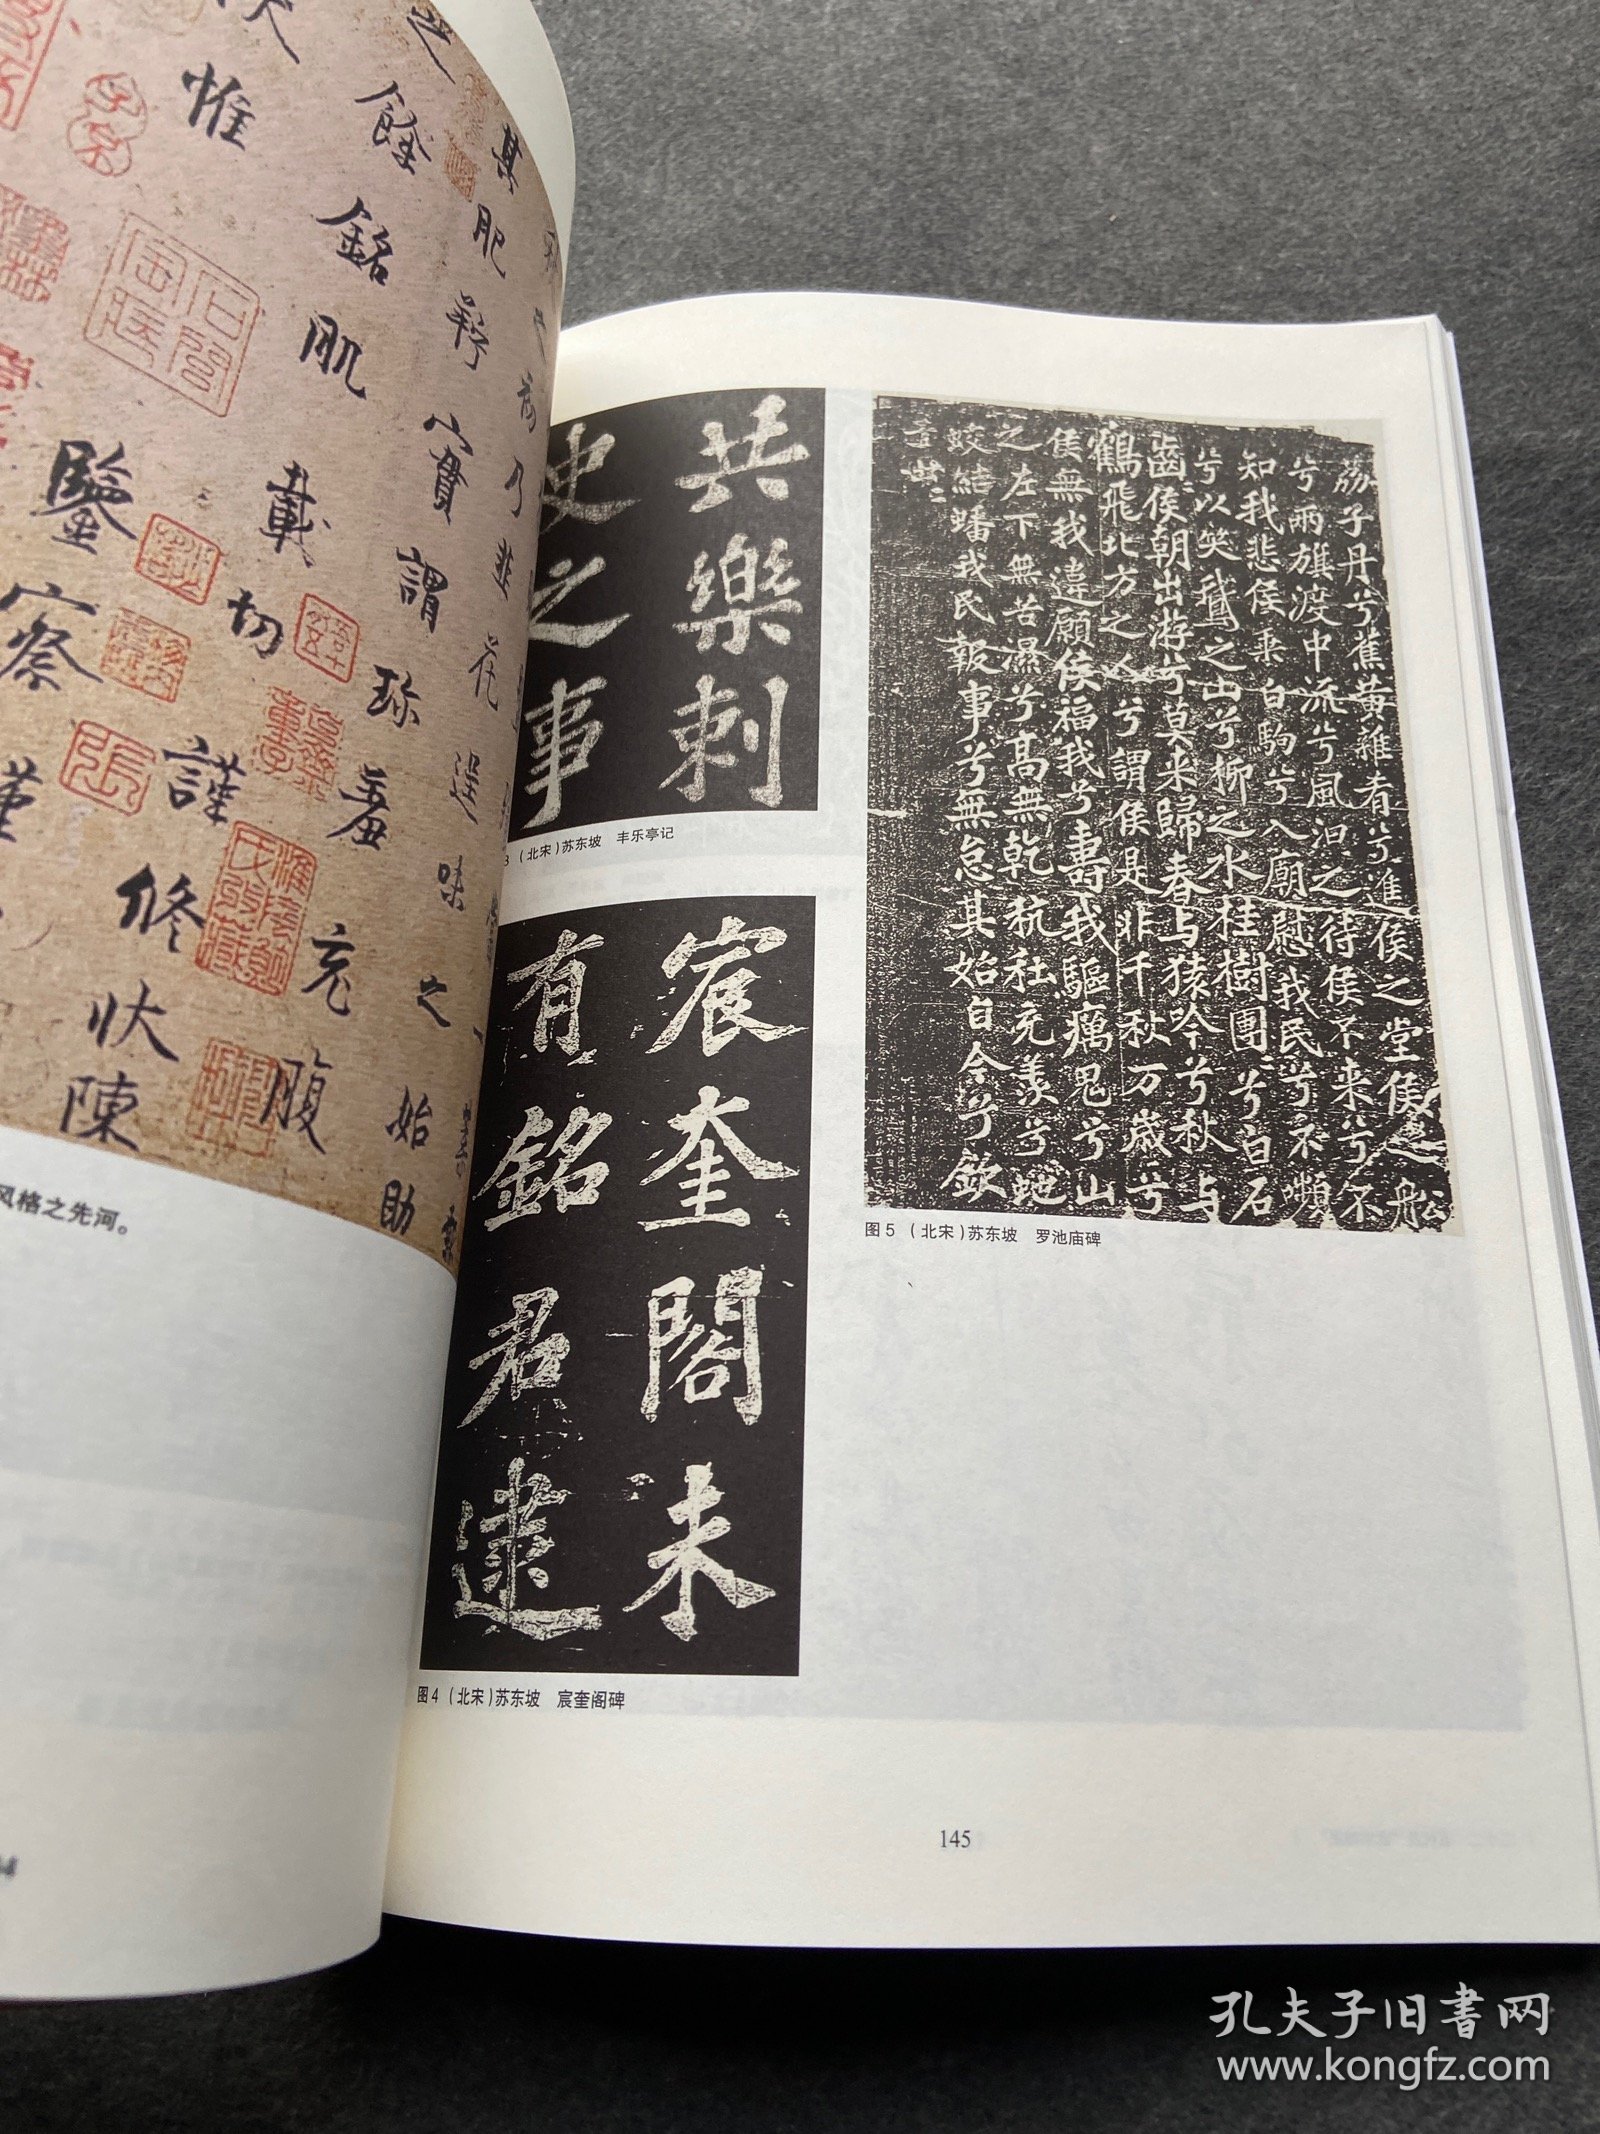 秋之初乃韭花逞味之始助
其肥羜實謂珍羞充腹
之餘銘肌載切謹修狀陳
伏惟
鑒察謹
风格之先河。
共樂刺
史之事
3 (北宋)苏东坡 丰乐亭记
宸奎閣未
有銘君逮
图4 (北宋)苏东坡 宸奎阁碑
荔子丹兮蕉黃雜肴兮進侯之堂侯之船
兮兩旗渡中流兮風汩之待侯不來兮不
知我悲侯乘白駒兮入廟慰我民兮不嚬
兮以笑鵝之山兮柳之水桂樹團〻兮白石
齒〻侯朝出游兮莫来歸春与猿吟兮秋与
鶴飛北方之人兮謂侯是非千秋万歲兮
侯無我違願侯福我兮壽我驅癘鬼兮山
之左下無苦濕兮高無乾秔稌充羨兮虵
蛟結蟠我民報事兮無怠其始自今兮欽
于世〻
图5 (北宋)苏东坡 罗池庙碑
145
孔夫子旧书网
www.kongfz.com